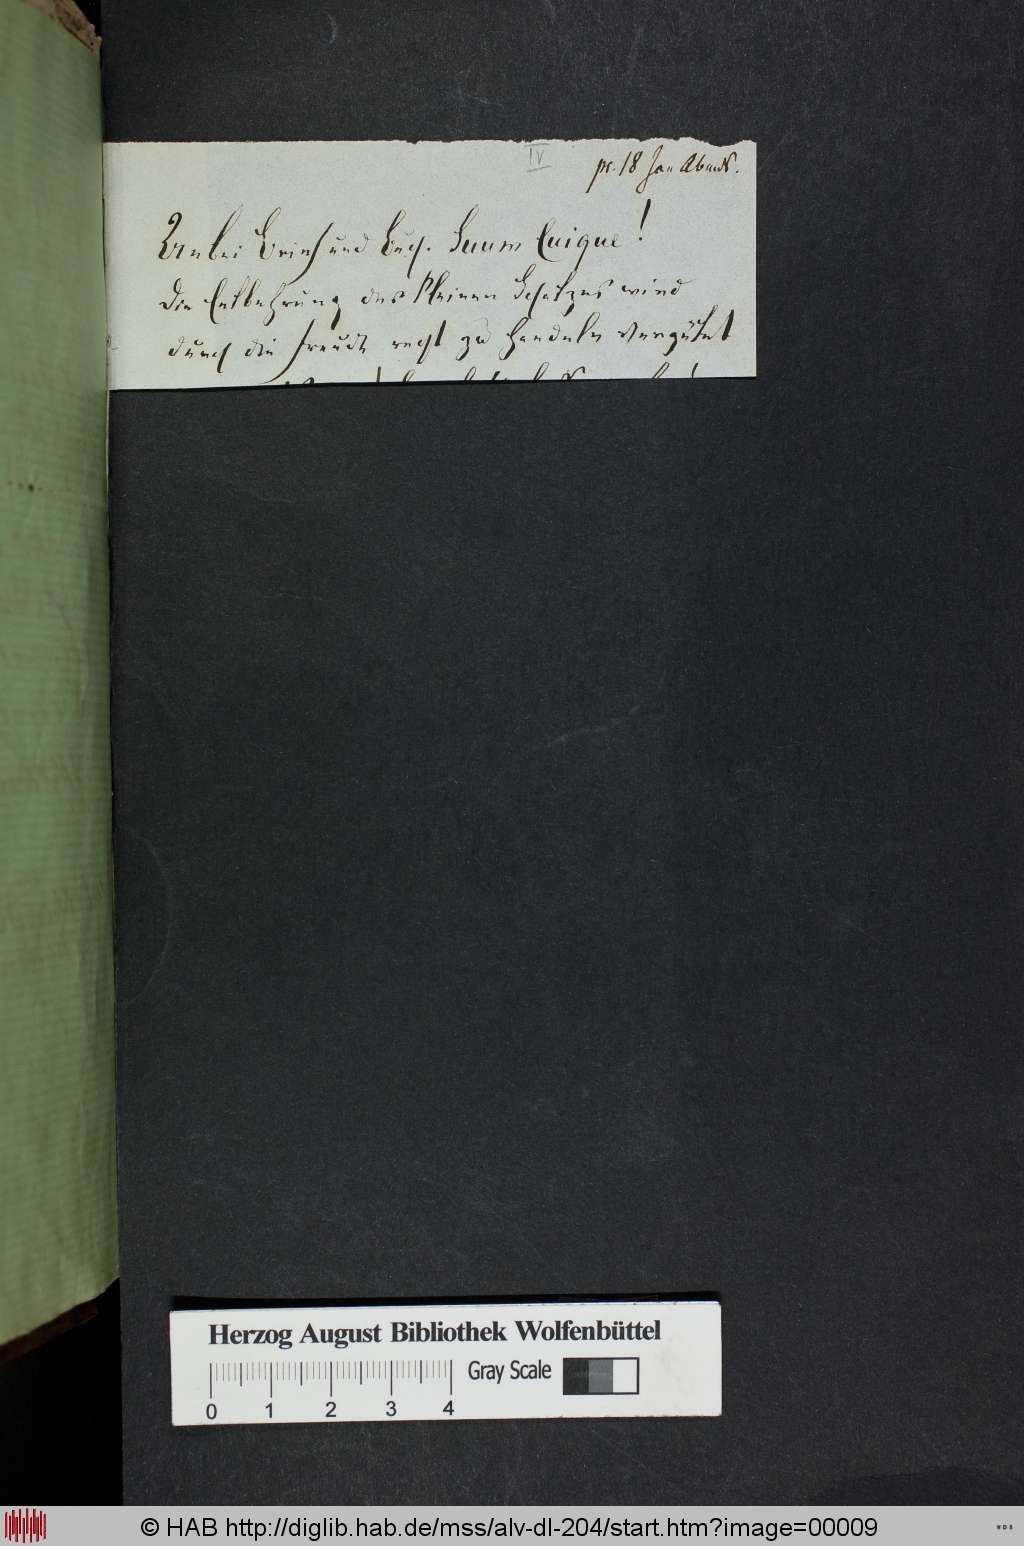 IV
pr. 18 Jan Abends.
Anbei Brief und Buch. Suum Cuique!
Die Entbehrung des kleinen Schatzes wird
durch die Freude recht zu handeln vergütet
Herzog August Bibliothek Wolfenbüttel
Gray Scale
0 1 2 3 4
© HAB http://diglib.hab.de/mss/alv-dl-204/start.htm?image=00009
WDB